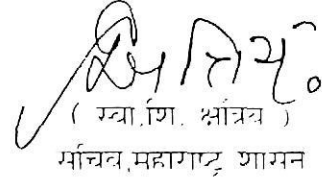 ( स्वा.शि. क्षत्रिय )
सचिव,महाराष्ट्र शासन